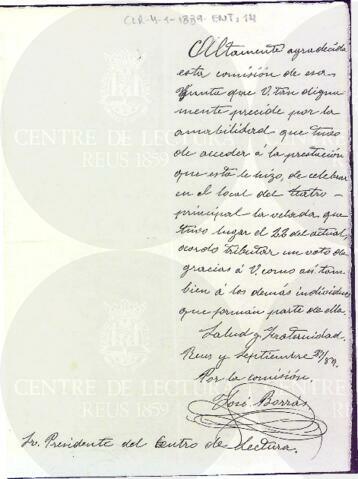 CLR-4-1-1889-ENT, 14
Altamente agradecida
esta comisión de esa
Junta que V. tan digna
mente preside por la
amabilidad que tuvo
de acceder á la
que esta le hizo, de celebrar
en el local del teatro-
principal la velada que
tuvo lugar el 22 del actual,
acordó tributar un voto de
gracias á V. como así tam
bien á los demás individuos
que forman parte de ella.
Salud y Fraternidad.
Reus y Septiembre /89.
Por la comisión
José Borrás
Sr. Presidente del Centro de Lectura.
CENTRE DE LECTURA
REUS 1859